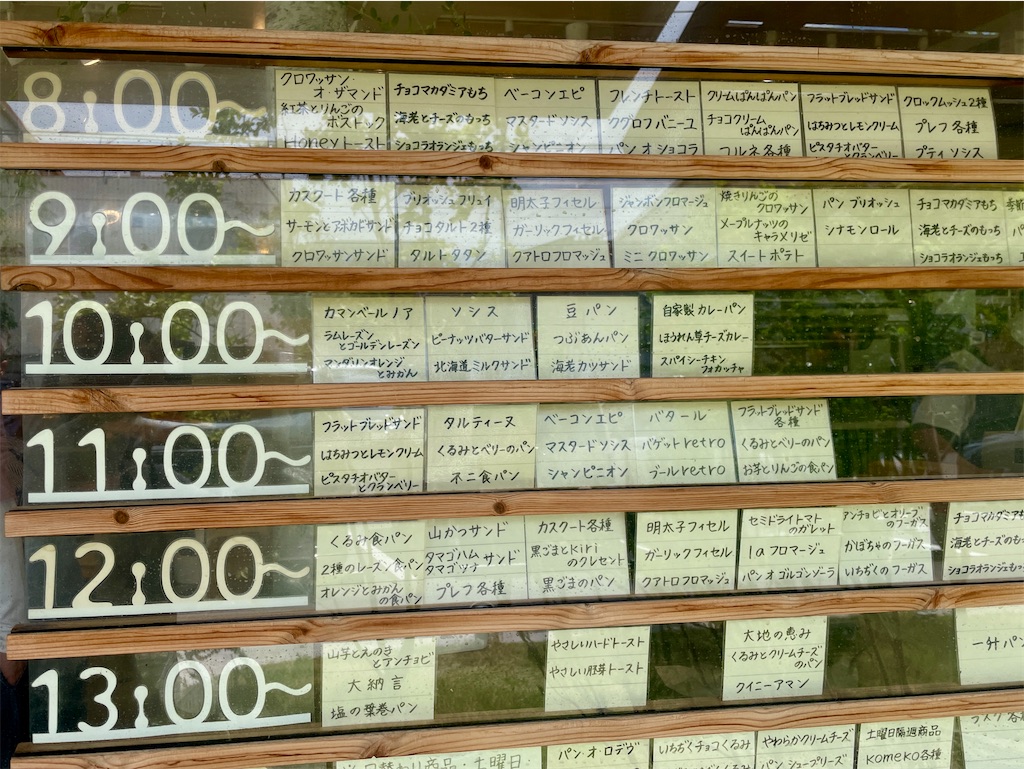 8:00〜
クロワッサン・オ・ザマンド
紅茶とりんごのボストック
Honeyトースト
チョコマカダミアもち
海老とチーズのもっち
ショコラオランジェもっち
ベーコンエピ
マスタードソシス
シャンピニオン
フレンチトースト
クグロフバニーユ
パン オ ショコラ
クリームぱんぱんパン
チョコクリームぱんぱんパン
フルネ各種
フラットブレッドサンド
はちみつとレモンクリーム
ピスタチオバターとクランベリー
クロックムッシュ2種
プレフ 各種
プティ ソシス
9:00〜
カスクート 各種
サーモンとアボカドサンド
クロワッサンサンド
ブリオッシュフリュイ
チョコタルト2種
タルトタタン
明太子フィセル
ガーリックフィセル
クアトロフロマッジュ
ジャンボンフロマージュ
クロワッサン
ミニ クロワッサン
焼きりんごのクロワッサン
メープルナッツのキャラメリゼ
スイートポテト
パン ブリオッシュ
シナモンロール
チョコマカダミアもち
海老とチーズのもっち
ショコラオランジェもっち
10:00〜
カマンベールノア
ラムレーズンとゴールデンレーズン
マンダリンオレンジとみかん
ソシス
ピーナッツバターサンド
北海道ミルクサンド
豆パン
つぶあんパン
海老カツサンド
自家製カレーパン
ほうれん草チーズカレー
スパイシーチキンフォカッチャ
11:00〜
フラットブレッドサンド
はちみつとレモンクリーム
ピスタチオバターとクランベリー
タルティーヌ
くるみとベリーのパン
不二食パン
ベーコンエピ
マスタードソシス
シャンピニオン
バタール
バゲットretro
ブールretro
フラットブレッドサンド各種
くるみとベリーのパン
お芋とりんごの食パン
12:00〜
くるみ食パン
2種のレーズン食パン
オレンジとみかんの食パン
山かつサンド
タマゴハム タマゴツナ サンド
プレフ 各種
カスクート各種
黒ごまとkiriのクレセント
黒ごまのパン
明太子フィセル
ガーリックフィセル
クアトロフロマッジュ
セミドライトマトのガレット
laフロマージュ
パンオゴルゴンゾーラ
アンチョビとオリーブのフーガス
かぼちゃのフーガス
いちぢくのフーガス
チョコマカダミアも
海老とチーズのもっ
ショコラオランジェもっ
13:00〜
山芋とえのきとアンチョビ
大納言
塩の葉巻パン
やさしいハードトースト
やさしい胚芽トースト
大地の恵み
くるみとクリームチーズのパン
クイニーアマン
一升パン
日替わり商品・土曜日:
パン・オ・ロデヴ
いちぢくチョコくるみ
やわらかクリームチーズ
パン シュープリーズ
土曜日隔週商品
komeko各種